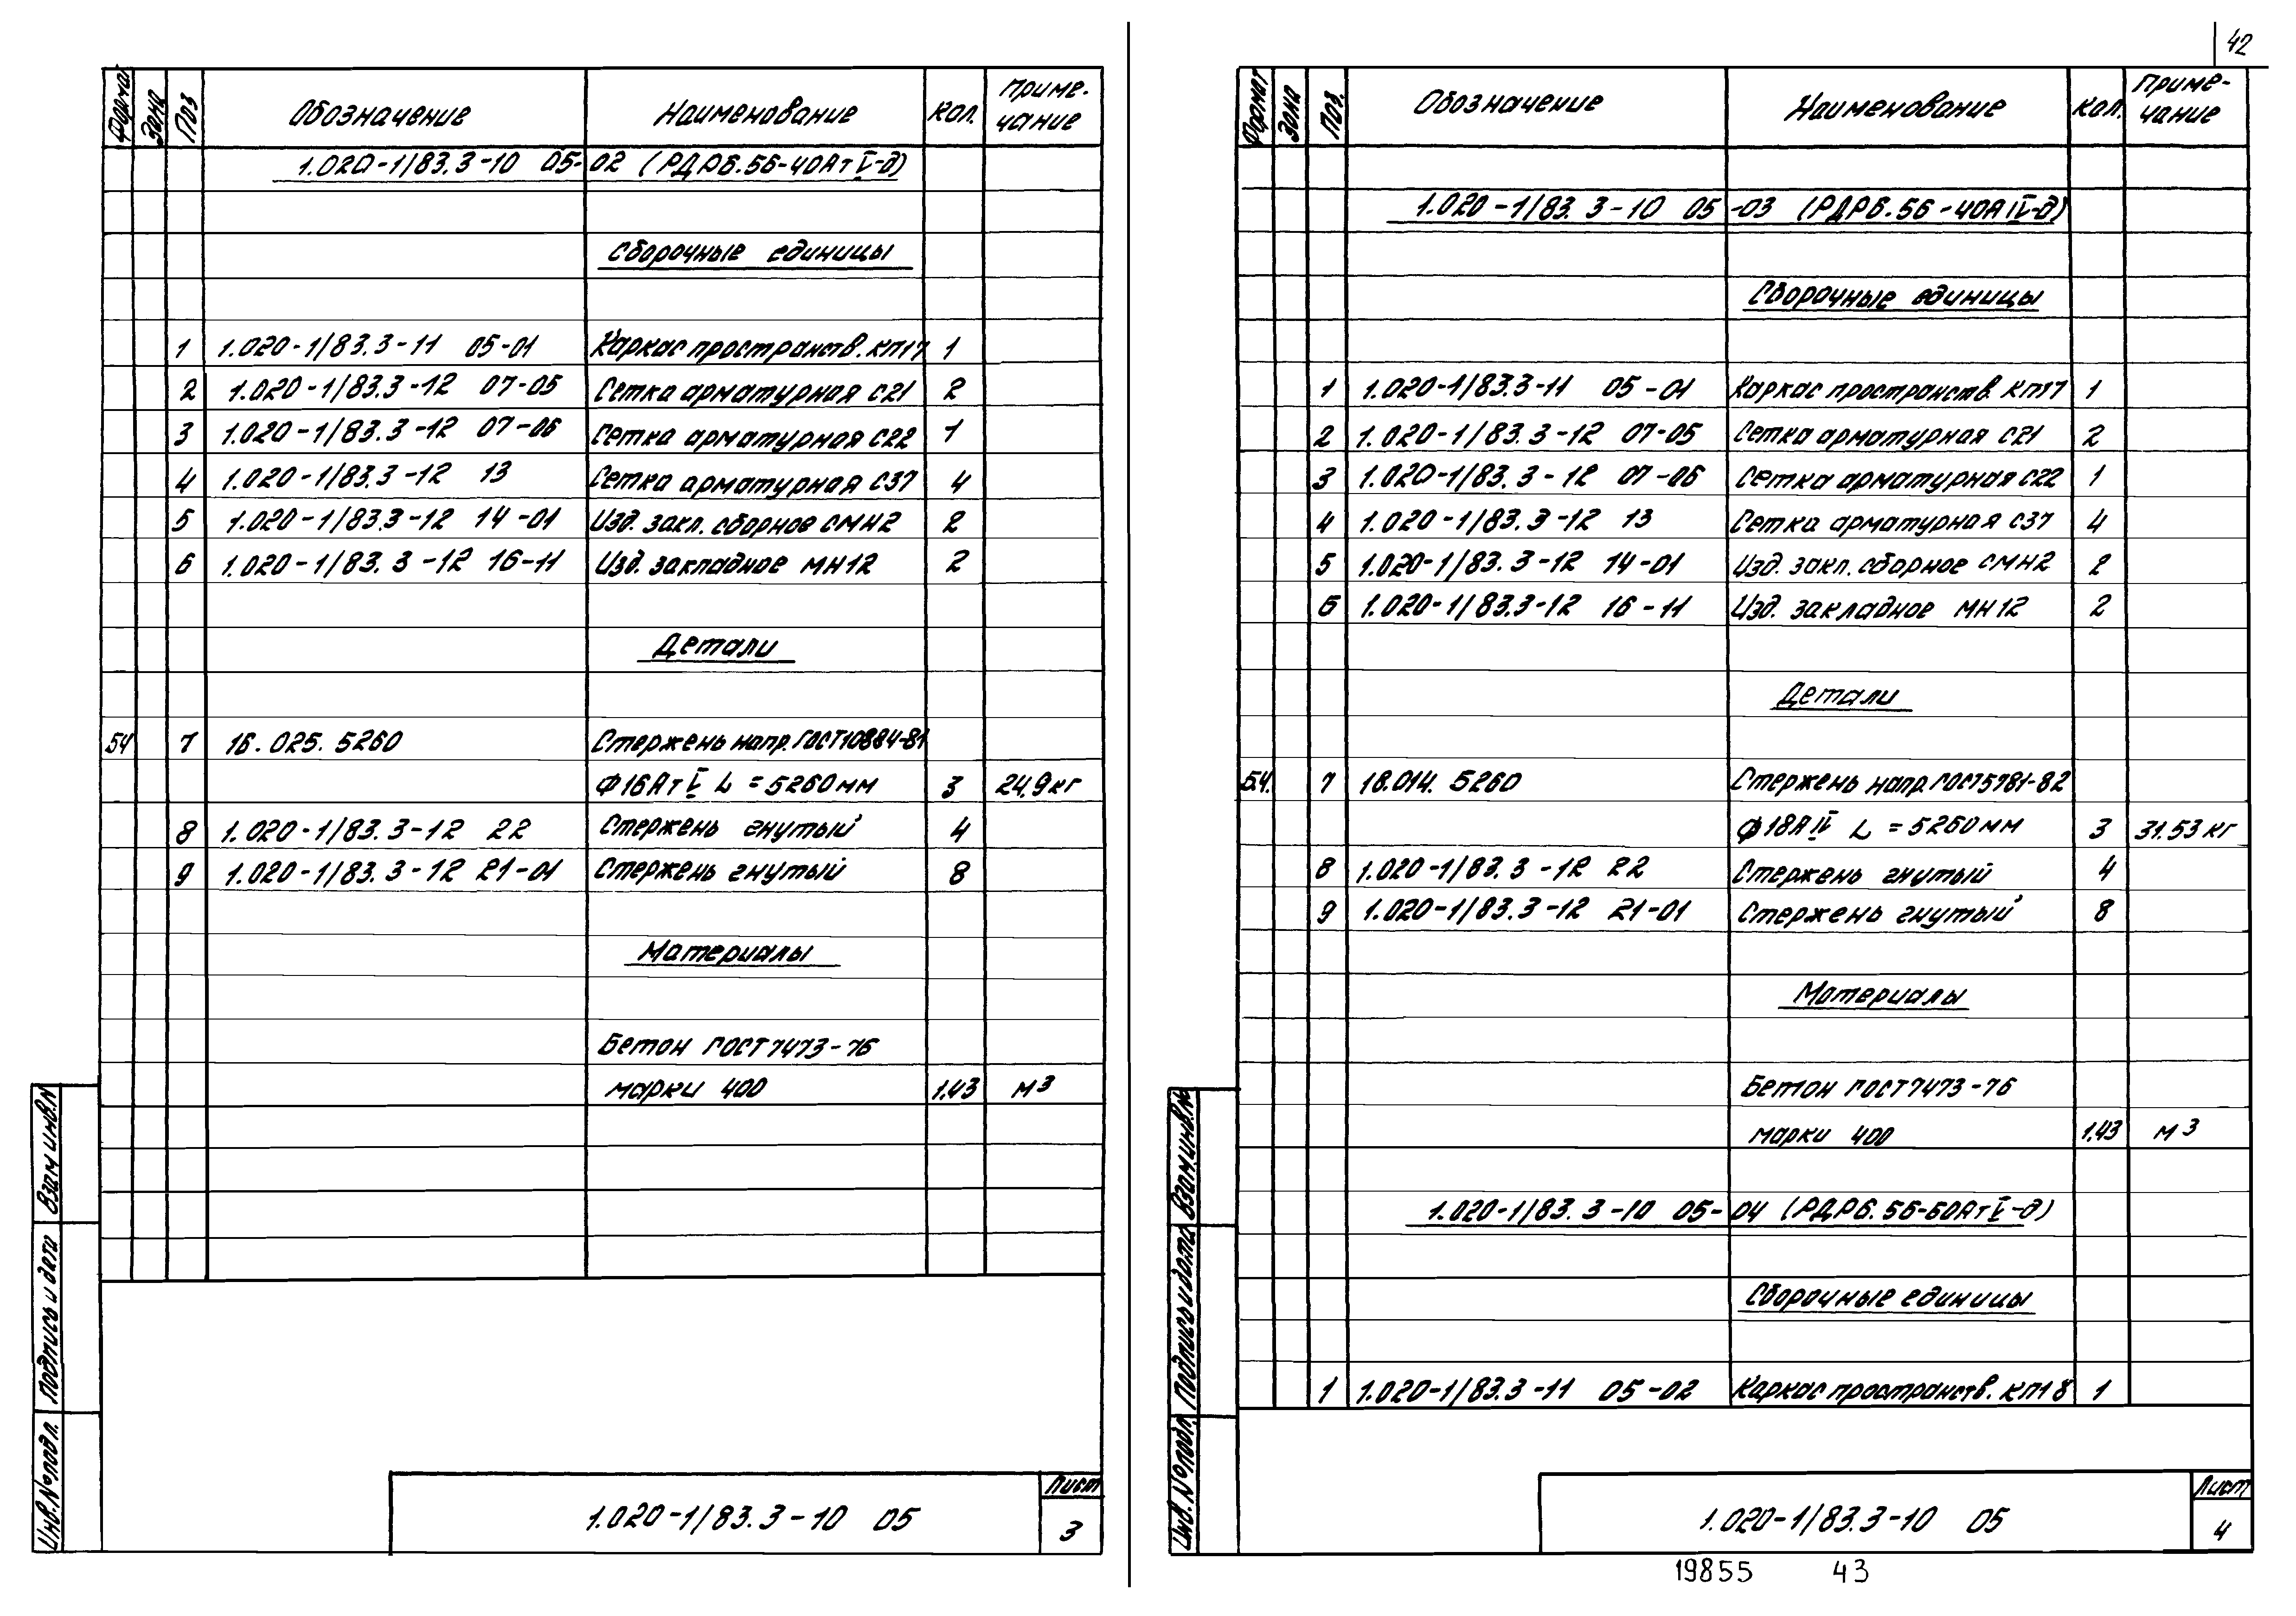 42
Формат Зона Поз Обозначение Наименование Кол. Приме-чание
1.020-1/83.3-10 05-02 (РДР6.56-40АтV-д)
Сборочные единицы
1 1.020-1/83.3-11 05-01 Каркас пространств. КП17 1
2 1.020-1/83.3-12 07-05 Сетка арматурная С21 2
3 1.020-1/83.3-12 07-06 Сетка арматурная С22 1
4 1.020-1/83.3-12 13 Сетка арматурная С37 4
5 1.020-1/83.3-12 14-01 Изд. закл. сборное СМН2 2
6 1.020-1/83.3-12 16-11 Изд. закладное МН12 2
Детали
БЧ 7 16.025.5260 Стержень напр. ГОСТ10884-81
Ф16АтV L=5260мм 3 24,9кг
8 1.020-1/83.3-12 22 Стержень гнутый 4
9 1.020-1/83.3-12 21-01 Стержень гнутый 8
Материалы
Бетон ГОСТ7473-76
марки 400 1.43 м3
Взам инв.N
Подпись и дата
Инв.№подл.
1.020-1/83.3-10 05
Лист
3
Формат Зона Поз. Обозначение Наименование Кол. Приме-чание
1.020-1/83.3-10 05-03 (РДР6.56-40АIV-д)
Сборочные единицы
1 1.020-1/83.3-11 05-01 Каркас пространств. КП17 1
2 1.020-1/83.3-12 07-05 Сетка арматурная С21 2
3 1.020-1/83.3-12 07-06 Сетка арматурная С22 1
4 1.020-1/83.3-12 13 Сетка арматурная С37 4
5 1.020-1/83.3-12 14-01 Изд. закл. сборное СМН2 2
6 1.020-1/83.3-12 16-11 Изд. закладное МН12 2
Детали
БЧ. 7 18.014.5260 Стержень напр. ГОСТ5781-82
Ф18АIV L=5260мм 3 31.53кг
8 1.020-1/83.3-12 22 Стержень гнутый 4
9 1.020-1/83.3-12 21-01 Стержень гнутый 8
Материалы
Бетон ГОСТ7473-76
марки 400 1.43 м3
1.020-1/83.3-10 05-04 (РДР6.56-50АтV-д)
Сборочные единицы
1 1.020-1/83.3-11 05-02 Каркас пространств. КП18 1
Взам.инв.№
Подпись и дата
Инв.№подл.
1.020-1/83.3-10 05
Лист
4
19855 43